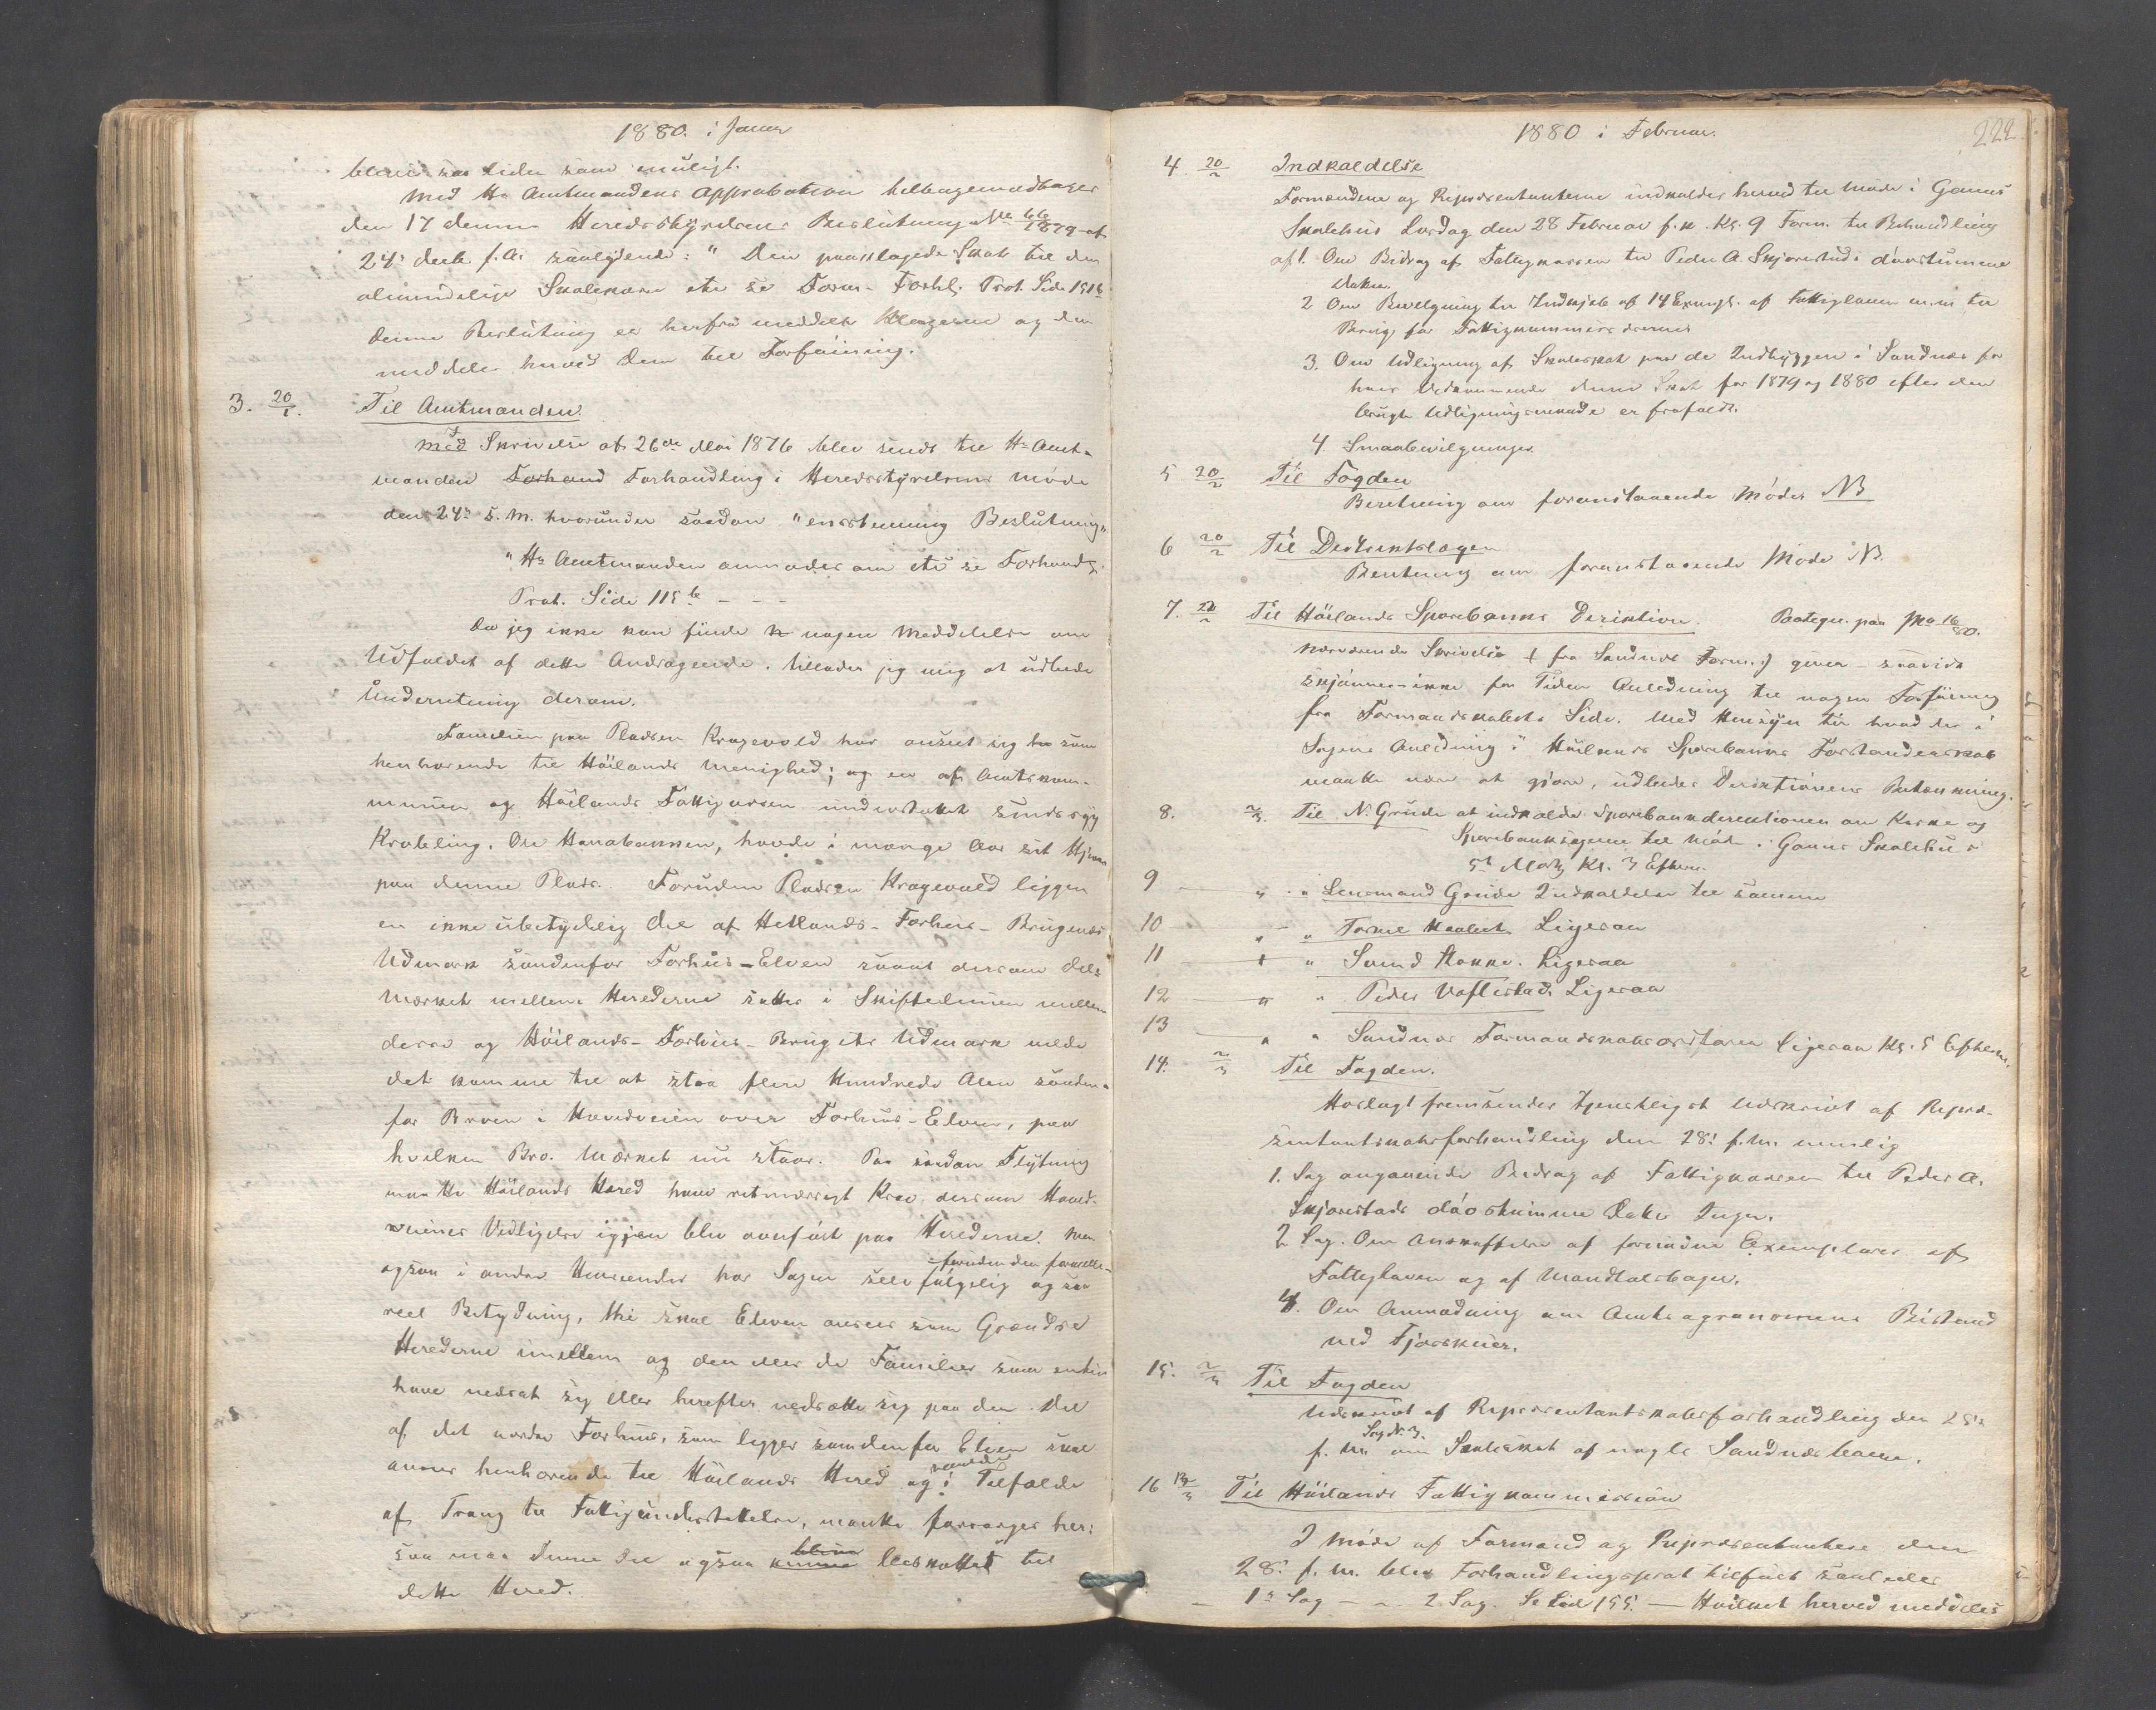 1880. i Januar
bliver saa liden som muligt.
Med Hr Amtmandens Approbation tilbagemodtages
den 17 dennes Heredsstyrelsens Beslutning No 66/1879 af
24de Decb. f. A. saalydende: "Den paaklagede Skat til den
almindelige Skolekasse etc se Form. Forhl. Prot. Side 151b
Denne Beslutning er herfra meddelt Klagerne og den
meddeles herved Dem til Forføining.
3. 20/1. Til Amtmanden.
Med Skrivelse af 26de Mai 1876 blev sendt til Hr Amt-
manden Forhand Forhandling i Heredsstyrelsens Møde
den 24de s. M. hvorunder saadan "enstemmig Beslutning"
"Hr Amtmanden anmodes om etc se Forhandl.
Prot. Side 115b - - -
Da jeg ikke kan finde nogen Meddelelse om
Udfaldet af dette Andragende, tillader jeg mig at udbede
Underretning derom.
Familien paa Pladsen Kragevold har anseet sig som
henhørende til Høilands Menighed; og en af Amtskom-
munen og Høilands Fattigvæsen understøttet sindssyg
Krøbling, Ole Hanabakken, havde i mange Aar sit Hjem
paa denne Plads. Foruden Pladsen Kragevold ligger
en ikke ubetydelig Del af Hetlands-Forhus-Brugenes
Udmark søndenfor Forhus-Elven saaat dersom Dele-
Mærket mellem Herederne sattes i Skiftelinien mellem
disse og Høilands-Forhus-Brugets Udmark vilde
det komme til at staa flere Hundrede Alen sønden-
for Broen i Hovedveien over Forhus-Elven, paa
hvilken Bro Mærket nu staar. Paa saadan Flytning
maatte Høilands Hered have retmæssigt Krav, dersom Hoved-
veiens Vedligehold igjen blev overført paa Herederne. Men
ogsaa i andre Henseender har Sagen selvfølgelig foruden den formelle ogsaa
reel Betydning, thi skal Elven ansees som Grændse
Herederne imellem og den eller de Familier som enten
have nedsat sig eller herefter nedsætte sig paa den Del
af det nordre Forhus, som ligger søndenfor Elven skal
ansees henhørende til Høilands Hered og i Tilfælde
af Trang til Fattigunderstøttelse, maatte forsørges her;
saa maa denne Del ogsaa kunne blive beskattet til
dette Hered.
1880 i Februar. 222
4. 20/2 Indkaldelse
Formændene og Repræsentanterne indkaldes herved til Møde i Gands
Skolehus Lørdag den 28 Februar f. k. Kl. 9 Form. til Behandling
af 1. Om Bidrag af Fattigkassen til Peder A. Skjørestads døvstumme
Datter.
2 Om Bevilgning til Indkjøb af 14 Exempl. af Fattigloven m. m til
Brug for Fattigkommissionen
3. Om Udligning af Skoleskat paa de Indbyggere i Sandnæs for
hvis Vedkommende denne Skat for 1879 og 1880 efter den
brugte Udligningsmaade er frafaldt.
4 Smaabevilgninger.
5 20/2 Til Fogden
Beretning om foranstaaende Møde NB
6 20/2 Til Distriktslægen
Beretning om foranstaaende Møde NB.
7. 21/2 Til Høilands Sparebanks Direktion. Paategn. paa No 16/80.
Nærværende Skrivelse (fra Sandnæs Form.) giver - saavidt
skjønnes - ikke for Tiden Anledning til nogen Forføining
fra Formandskabets Side. Med Hensyn til hvad der i
Sagens Anledning i Høilands Sparebanks Forstanderskab
maatte være at gjøre, udbedes Direktionens Betænkning.
8. 2/3. Til N. Grude at indkalde Sparebankdirektionen om Kirke og
Sparebanksagerne til Møde i Gands Skolehus
5te Marts Kl. 3 Efterm.
9 — " " Lensmand Grude Indkaldelse til samme
10 — " " Tørres Ligesaa
11 — " " Svend Stokke. Ligesaa
12 — " " Peder Vaflestad Ligesaa
13 — " " Sandnæs Formandskabsordfører ligesaa Kl. 5 Efterm.
14. 2/3 Til Fogden.
Hoslagt fremsendes tjenstligst Udskrivt af Repræ-
sentantskabsforhandling den 28de f. M. nemlig
1. Sag angaaende Bidrag af Fattigkassen til Peder A.
Skjørestads døvstumme Datter Inger.
2 Sag. Om Anskaffelse af fornødne Exemplarer af
Fattigloven og af Mandtalsbøger.
4. Om Anmodning om Amtsagronomens Bistand
ved Fjøsskuer.
15. 2/3 Til Fogden
Udskrivt af Repræsentantskabsforhandling den 28de
f. M. Sag No 3. om Skoleskat af nogle Sandnæsboere.
16 /3 Til Høilands Fattigkommission
I Møde af Formænd og Repræsentantere den
28de f. M. blev Forhandlingsprot. tilført saaledes
— 1ste Sag — 2. Sag. Se Side 155. — Hvilket herved meddeles